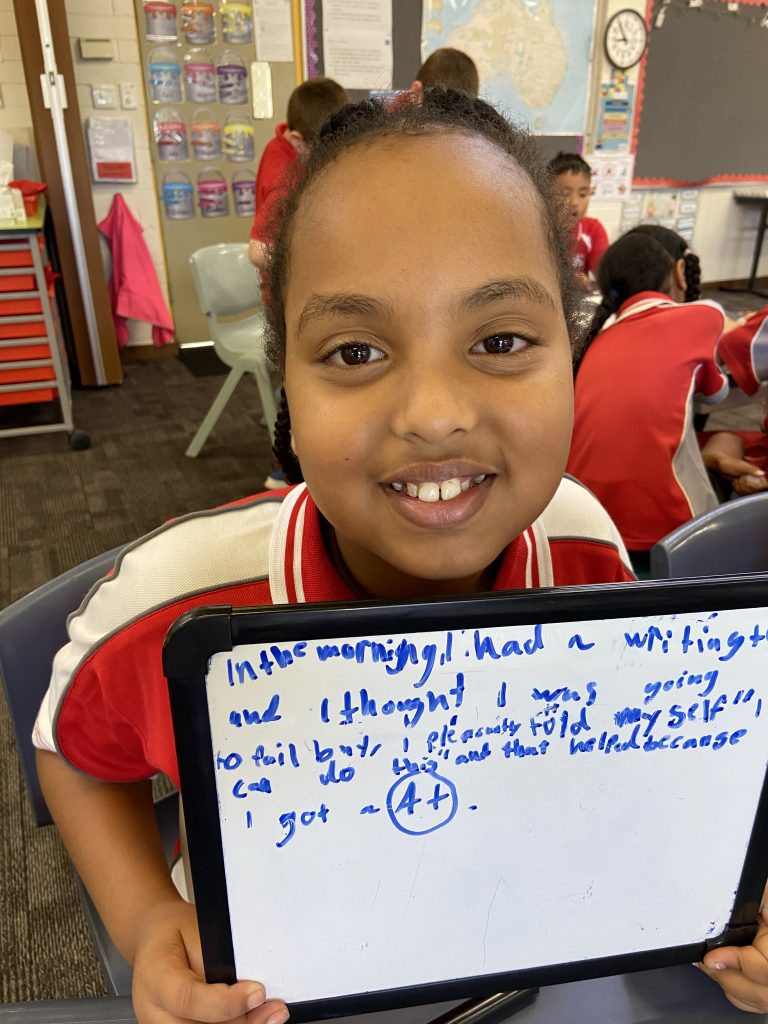 In the morning, I had a writing t
and I thought I was going
to fail but, I told myself "I
can do this" and that helped because
I got a A+.